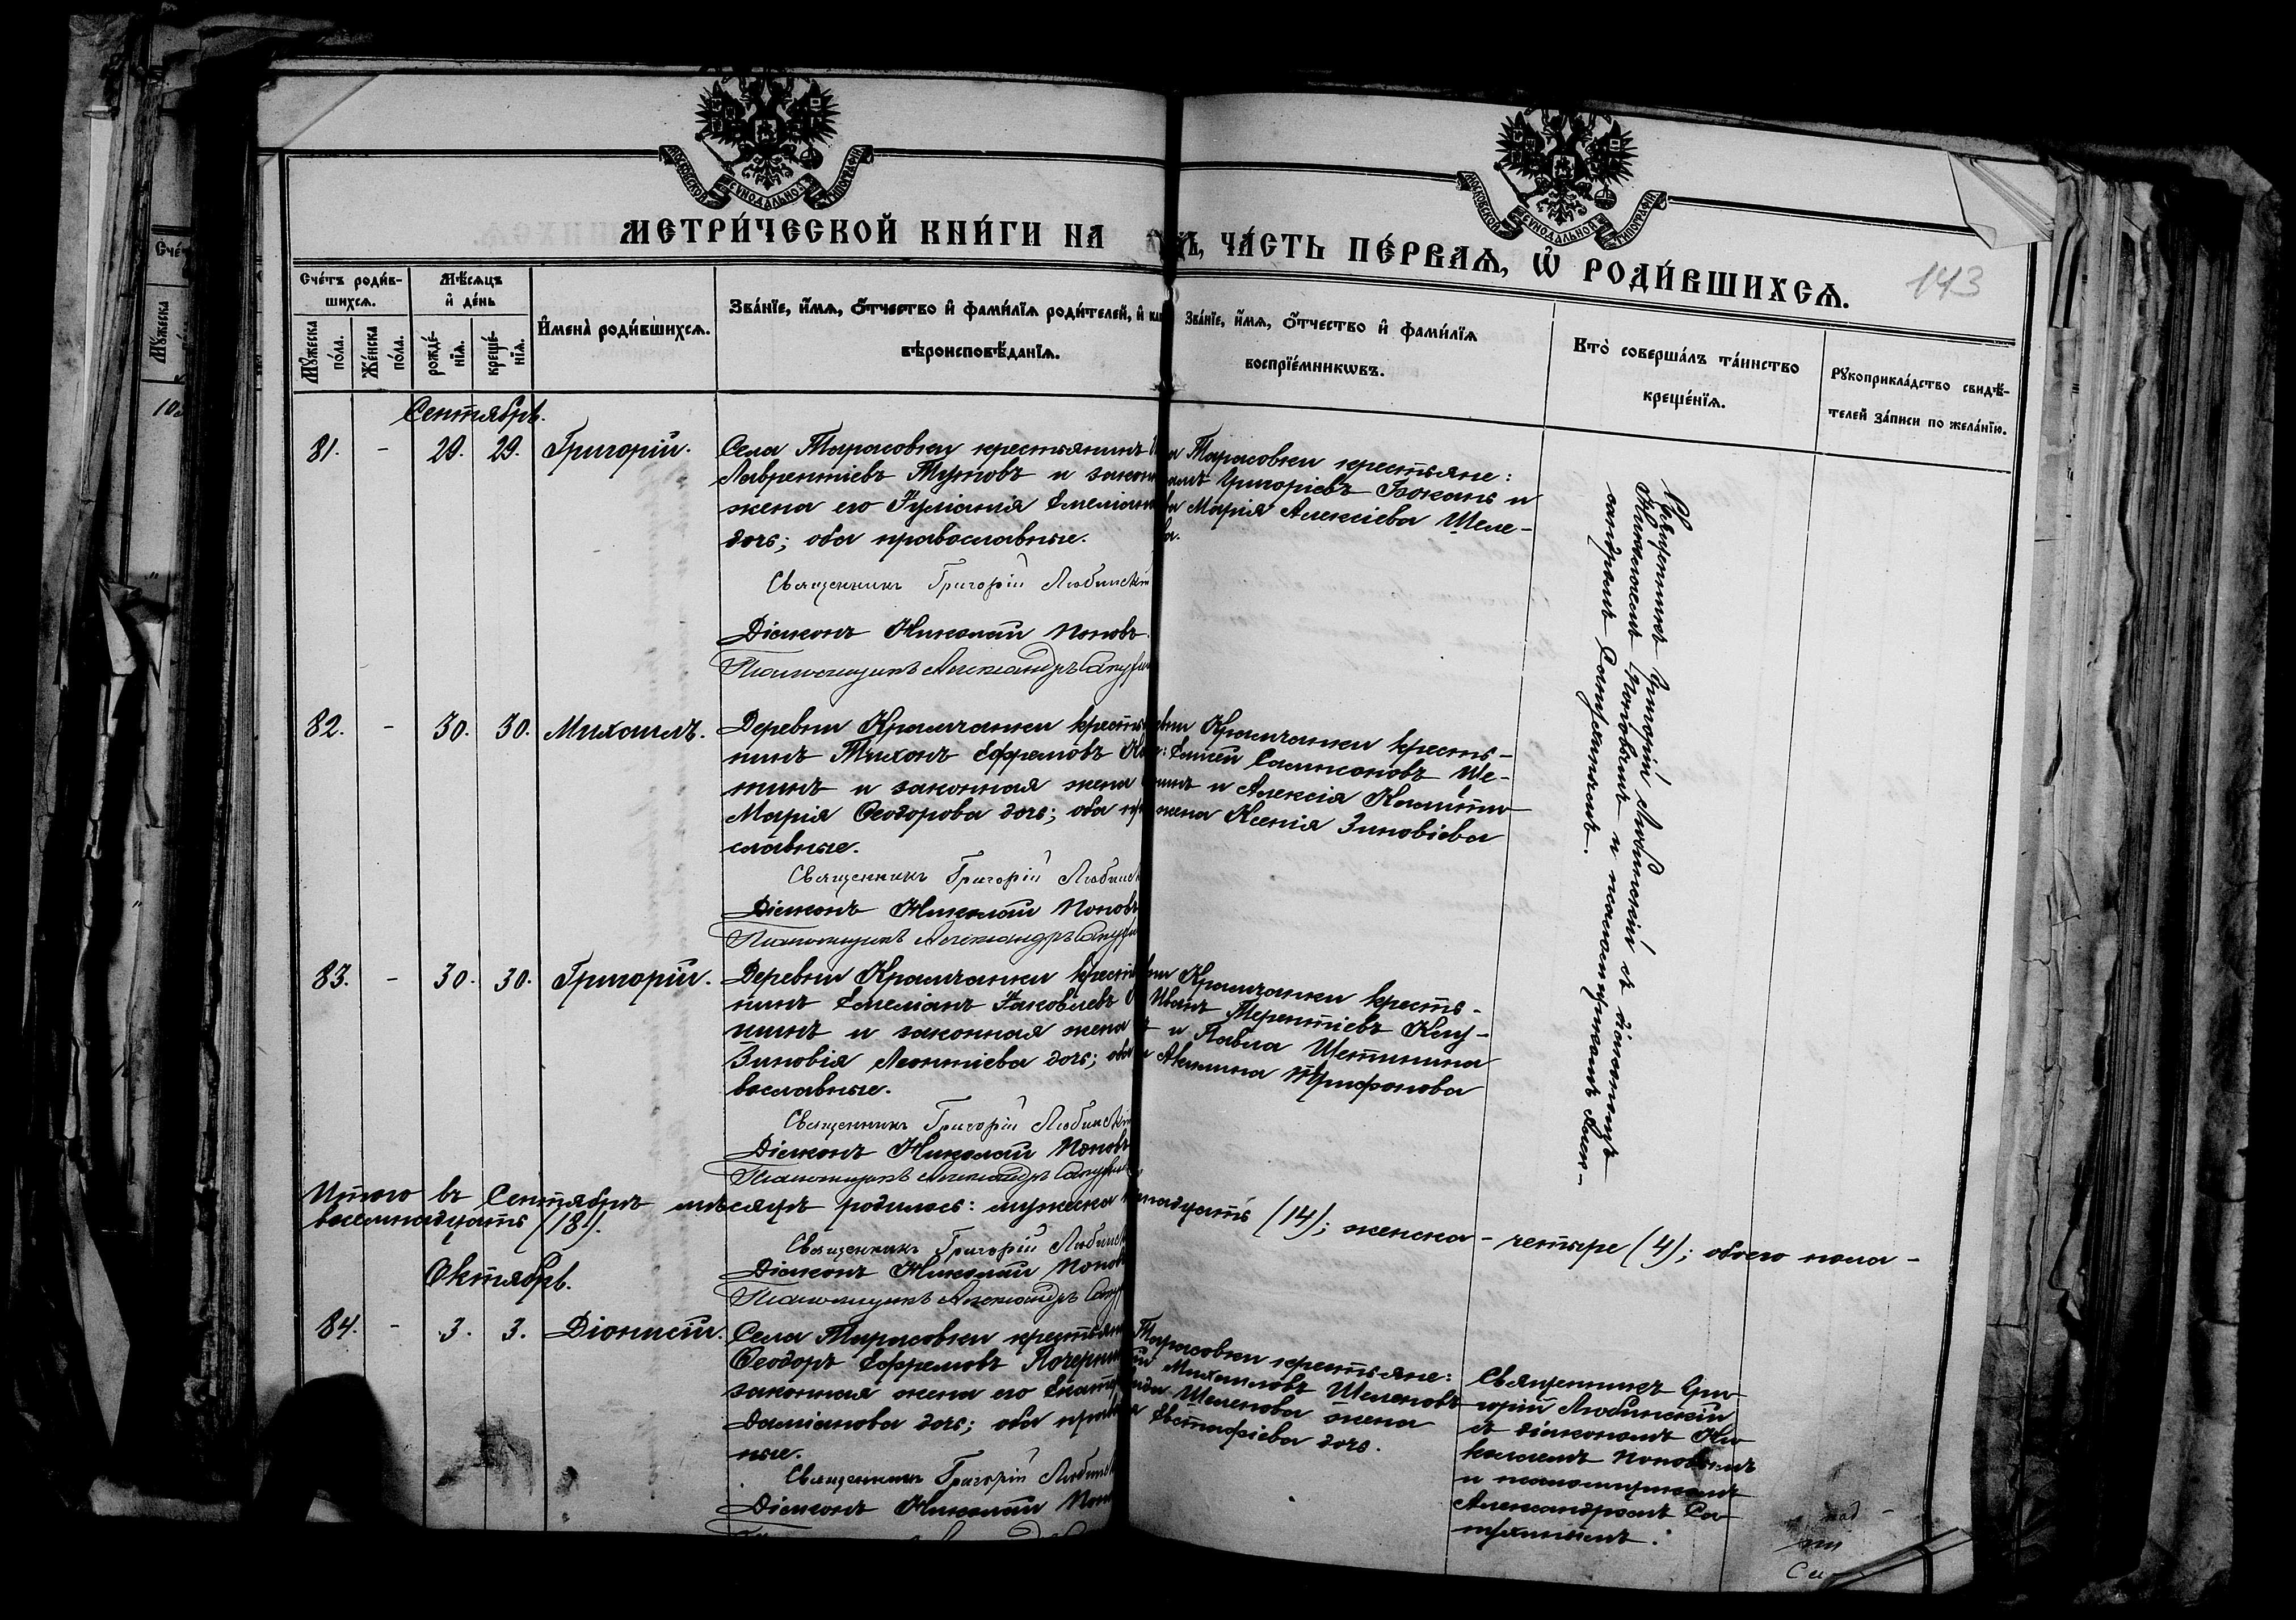 МЕТРИ́ЧЕСКОЙ КНИ́ГИ НА
Ъ, ЧА́СТЬ ПЕ́РВАѦ, Ѽ РОДИ́ВШИХСѦ.
143
Сче́тъ роди́в-
шихсѧ.
Мѣ́сѧцъ
и҆ де́нь
Мꙋ́жеска
по́ла.
Же́нска
по́ла.
рожде́-
нїѧ.
креще́-
нїѧ.
И҆мена̀ роди́вшихсѧ.
Зва́нїе, и҆́мѧ, ѻ҆́тчество и҆ фами́лїѧ роди́телей, и҆
вѣроисповѣ́данїѧ.
Зва́нїе, и҆́мѧ, ѻ҆́тчество и҆ фами́лїѧ
воспрїе́мникѡвъ.
Кто̀ соверша́лъ та́инство
креще́нїѧ.
Рꙋкоприкла́дство свидѣ́-
телей за́писи по жела́нїю.
Сентябрь.
81. - 29. 29. Григорій.
Села Тарасовки крестьянинъ
Лаврентіевъ Тутовъ и закон
жена его Іуліанія Емеліан
дочь; оба православные.
Священникъ Григорій Любинскій
Діаконъ Николай Поповъ.
Псаломщикъ Александръ
Тарасовки крестьяне:
Григорьевъ Бокань и
Марія Алексіева Щеле-
ва.
Священникъ Григорій Любинскій съ діакономъ
Николаемъ Поповымъ и псаломщикомъ Алек-
сандромъ
82. - 30. 30. Михаилъ.
Деревни Крамчанки крестья
нинъ Тихонъ Ефремовъ
тинъ и законная жена
Марія Ѳеодорова дочь; оба пра
славные.
Священникъ Григорій Любинск
Діаконъ Николай Поповъ
Псаломщикъ Александръ
Крамчанки кресть-
Самсоновъ Ще-
и Алексія
жена Ксенія Зиновіева
83. - 30. 30. Григорій.
Деревни Крамчанки кресть
нинъ Емеліанъ Іаковлевъ
тинъ и законная жена
Зиновія Леонтіева дочь; оба
вославные.
Священникъ Григорій Любинскій
Діаконъ Николай Поповъ
Псаломщикъ Александръ
Крамчанки кресть-
Иванъ Терентіевъ
и Павла Щетинина
Акилина Трифонова
Итого въ Сентябрѣ мѣсяцѣ родилось: мужска надцать (14); женска - четыре (4); обоего пола -
восемнадцать (18).
Священникъ Григорій Любинск
Діаконъ Николай Попов
Псаломщикъ Александръ
Октябрь.
84. - 3. 3. Діонисій.
Села Тарасовки крестьян
Ѳеодоръ Ефремовъ
законная жена его Екатер
Даміанова дочь; оба правос
ные.
Священникъ Григорій Любинск
Діаконъ Николай Поп
Тарасовки крестьяне:
Михаиловъ Щелеповъ
Щелепова жена
Евстафіева дочь.
Священникъ Гри-
горій Любинскій
съ діакономъ Ни-
колаемъ Поповымъ
и псаломщикомъ
Александромъ